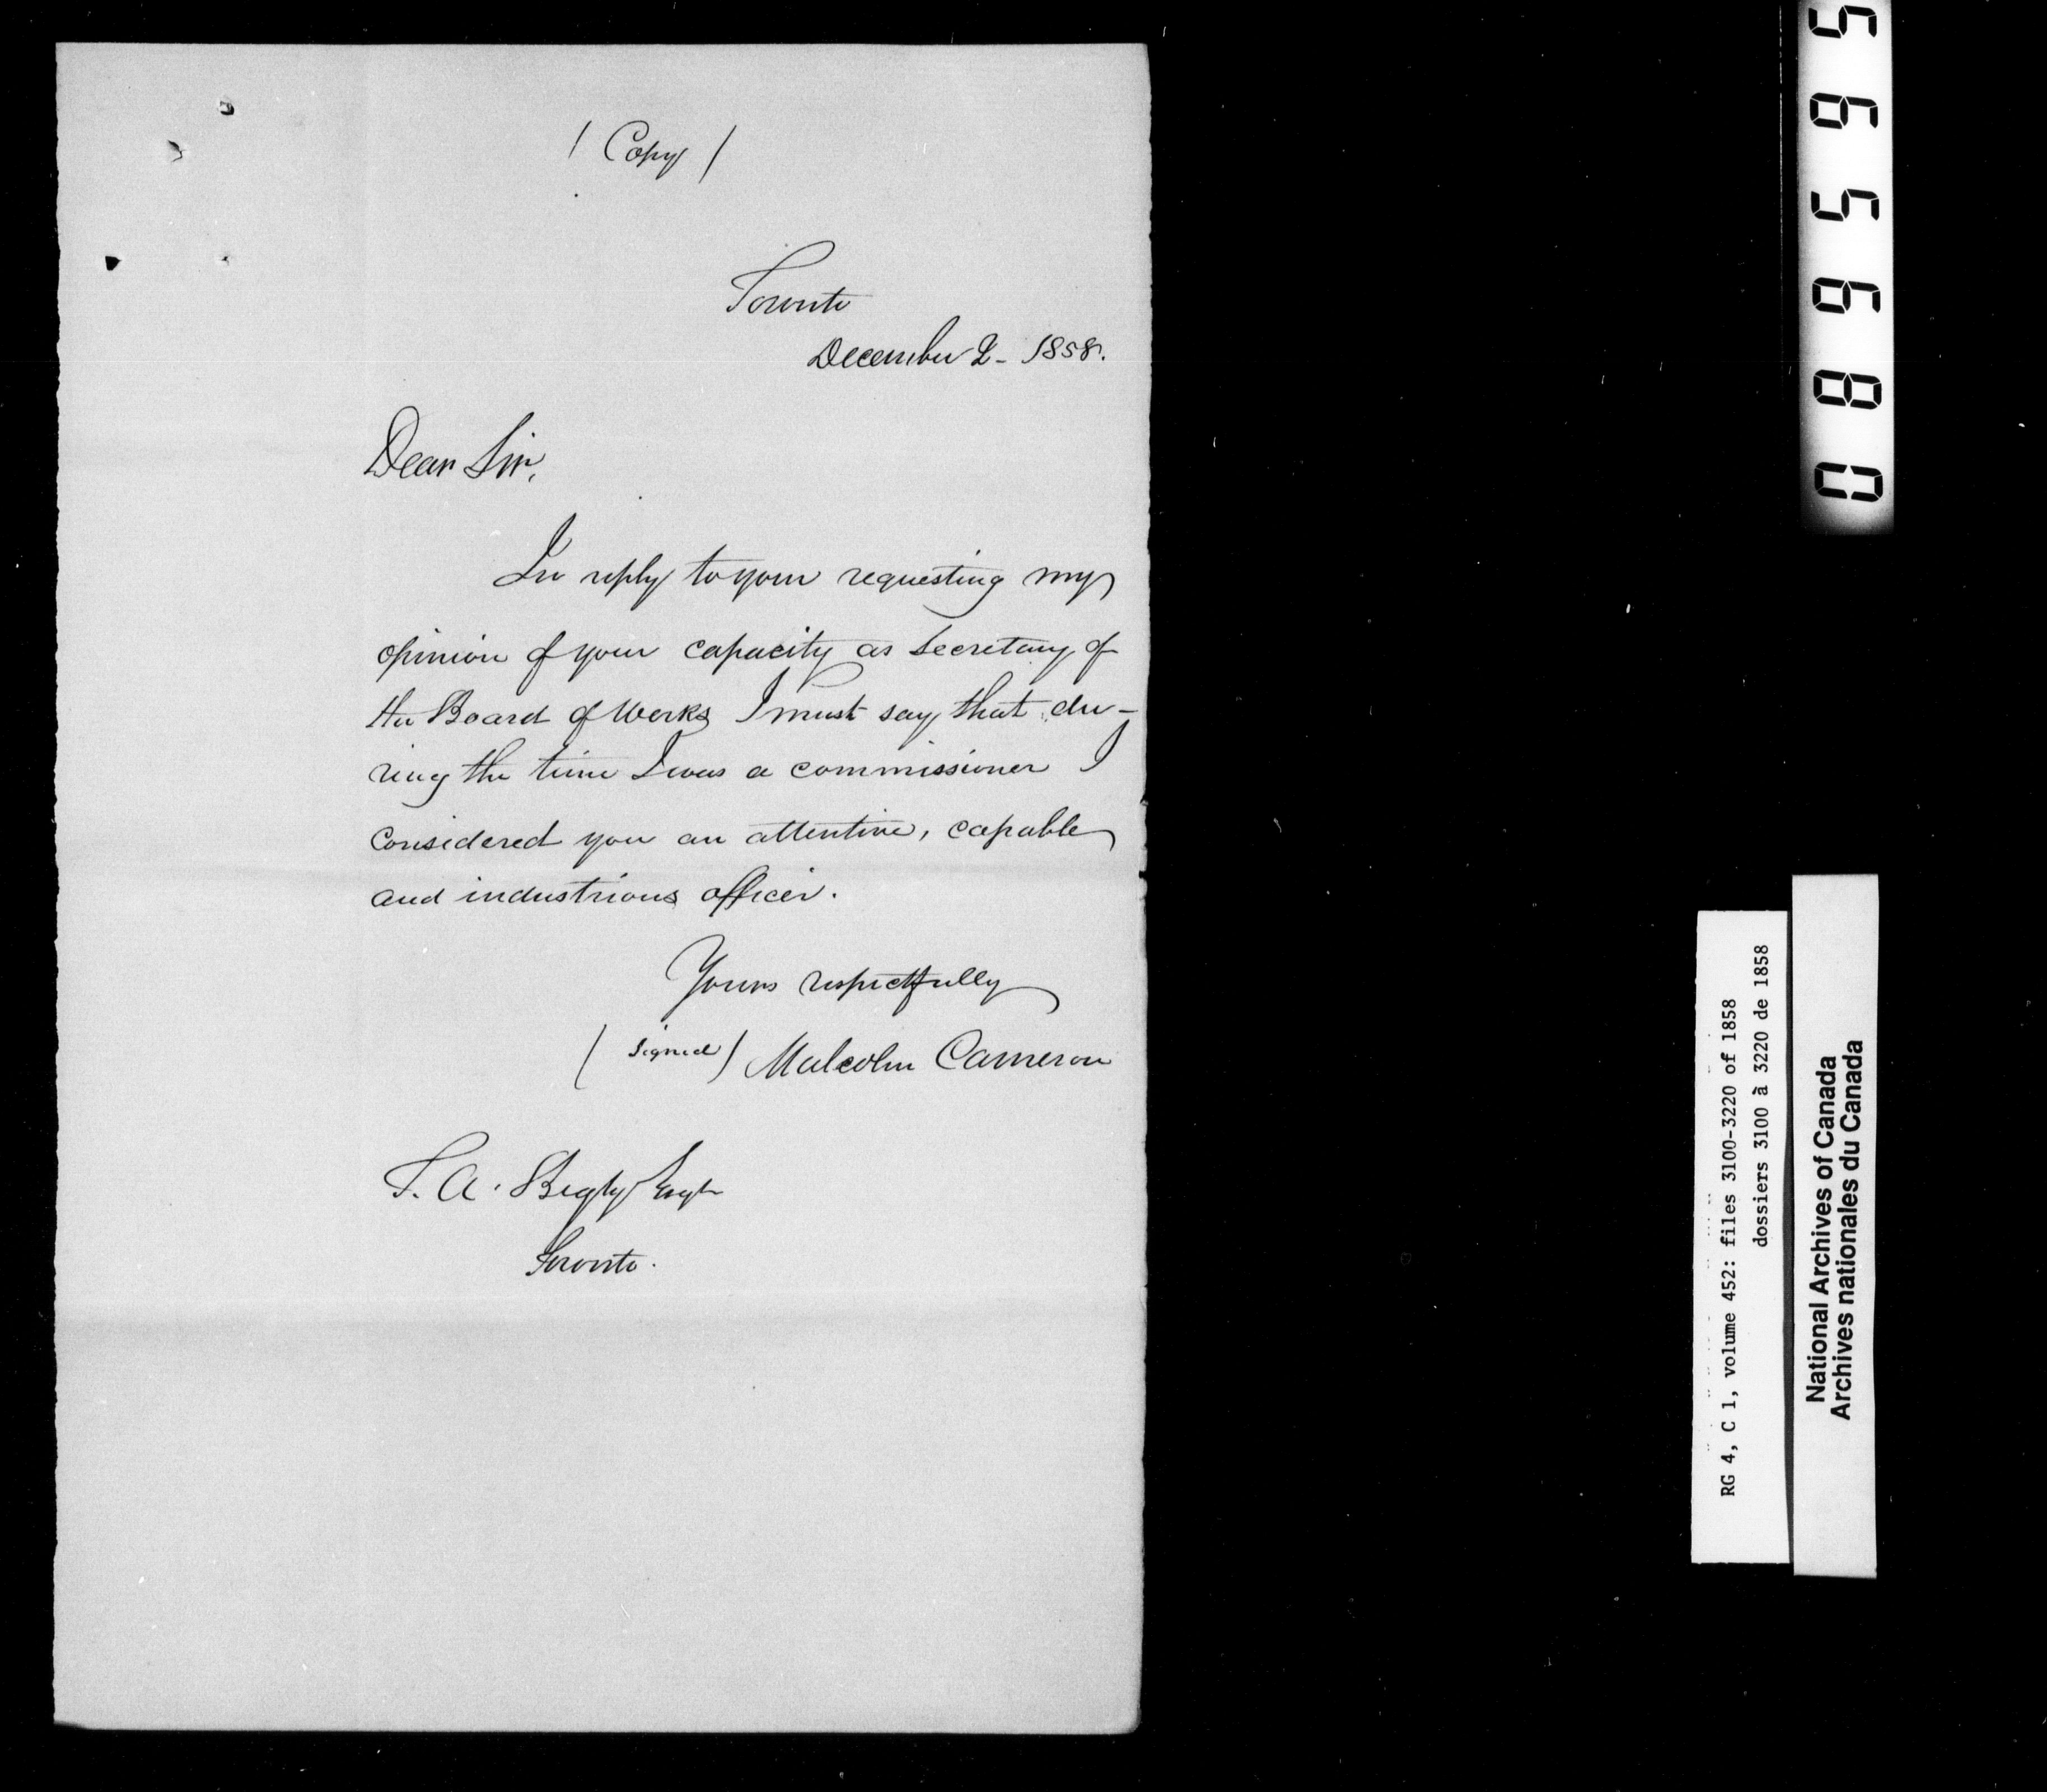 ( Copy )
Toronto
December 2 - 1858.
Dear Sir,
In reply to your requesting my
opinion of your capacity as Secretary of
the Board of Works I must say, that du-
ring the time I was a commissioner I
considered you an attentive, capable
and industrious officer.
Yours respectfully
( signed ) Malcolm Cameron
T. A. Begly Esqr
Toronto.
RG 4, C 1, volume 452: files 3100-3220 of 1858
dossiers 3100 à 3220 de 1858
National Archives of Canada
Archives nationales du Canada